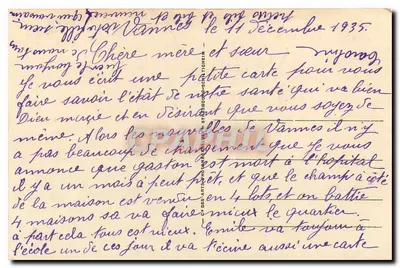 Vannes le 11 décembre 1935.
Chère mère et sœur
Je vous écrit une petite carte pour vous
faire savoir l'état de notre santé qui va bien
Dieu merci et en désirant que vous soyez de
même. Alors les nouvelles de Vannes il n'y
a pas beaucoup de changement que je vous
annonce que gaston est mort à l'hopital
il y a un mois a peut prêt, et que le champ à côté
de la maison est vendu en 4 lots et on battie
4 maisons sa va faire mieux le quartier.
à part cela tous est mieux. Emile va toujour à
l'école un de ces jour il va t'écrire aussi une carte